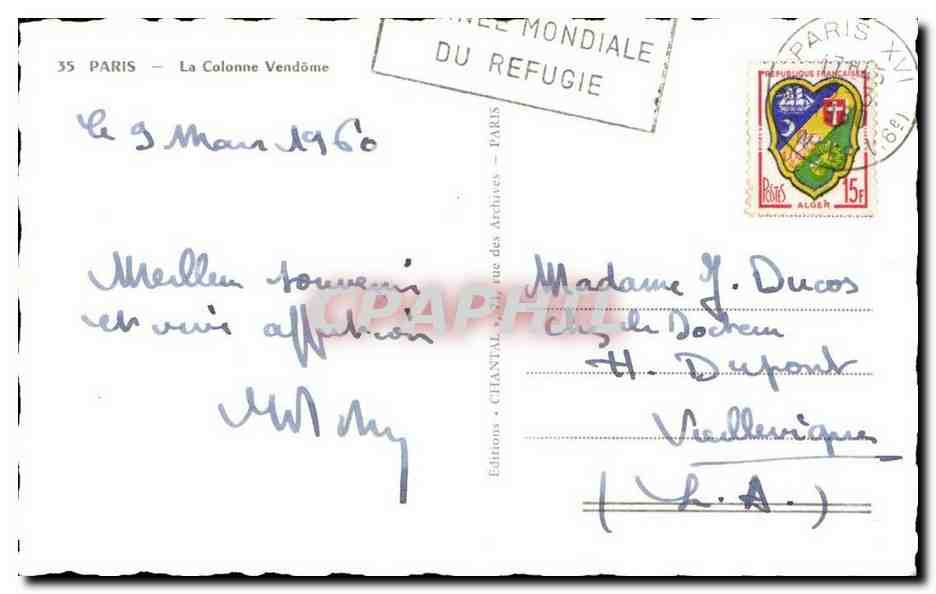 35 PARIS — La Colonne Vendôme
MONDIALE
DU REFUGIE
PARIS XVI
REPUBLIQUE FRANÇAISE
POSTES
15F
ALGER
le 9 Mars 1960
Meilleur souvenir
et vive affection
Editions • CHANTAL • 74, rue des Archives - PARIS
CPAPHIL
Madame J. Ducos
Chez le Docteur
H. Dupont
Vieillevigne
(L.A.)